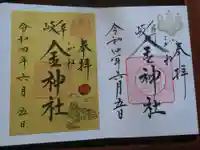 奉拝
岐阜
金神社
令和四年六月五日
奉拝
岐阜
金神社
令和四年六月五日